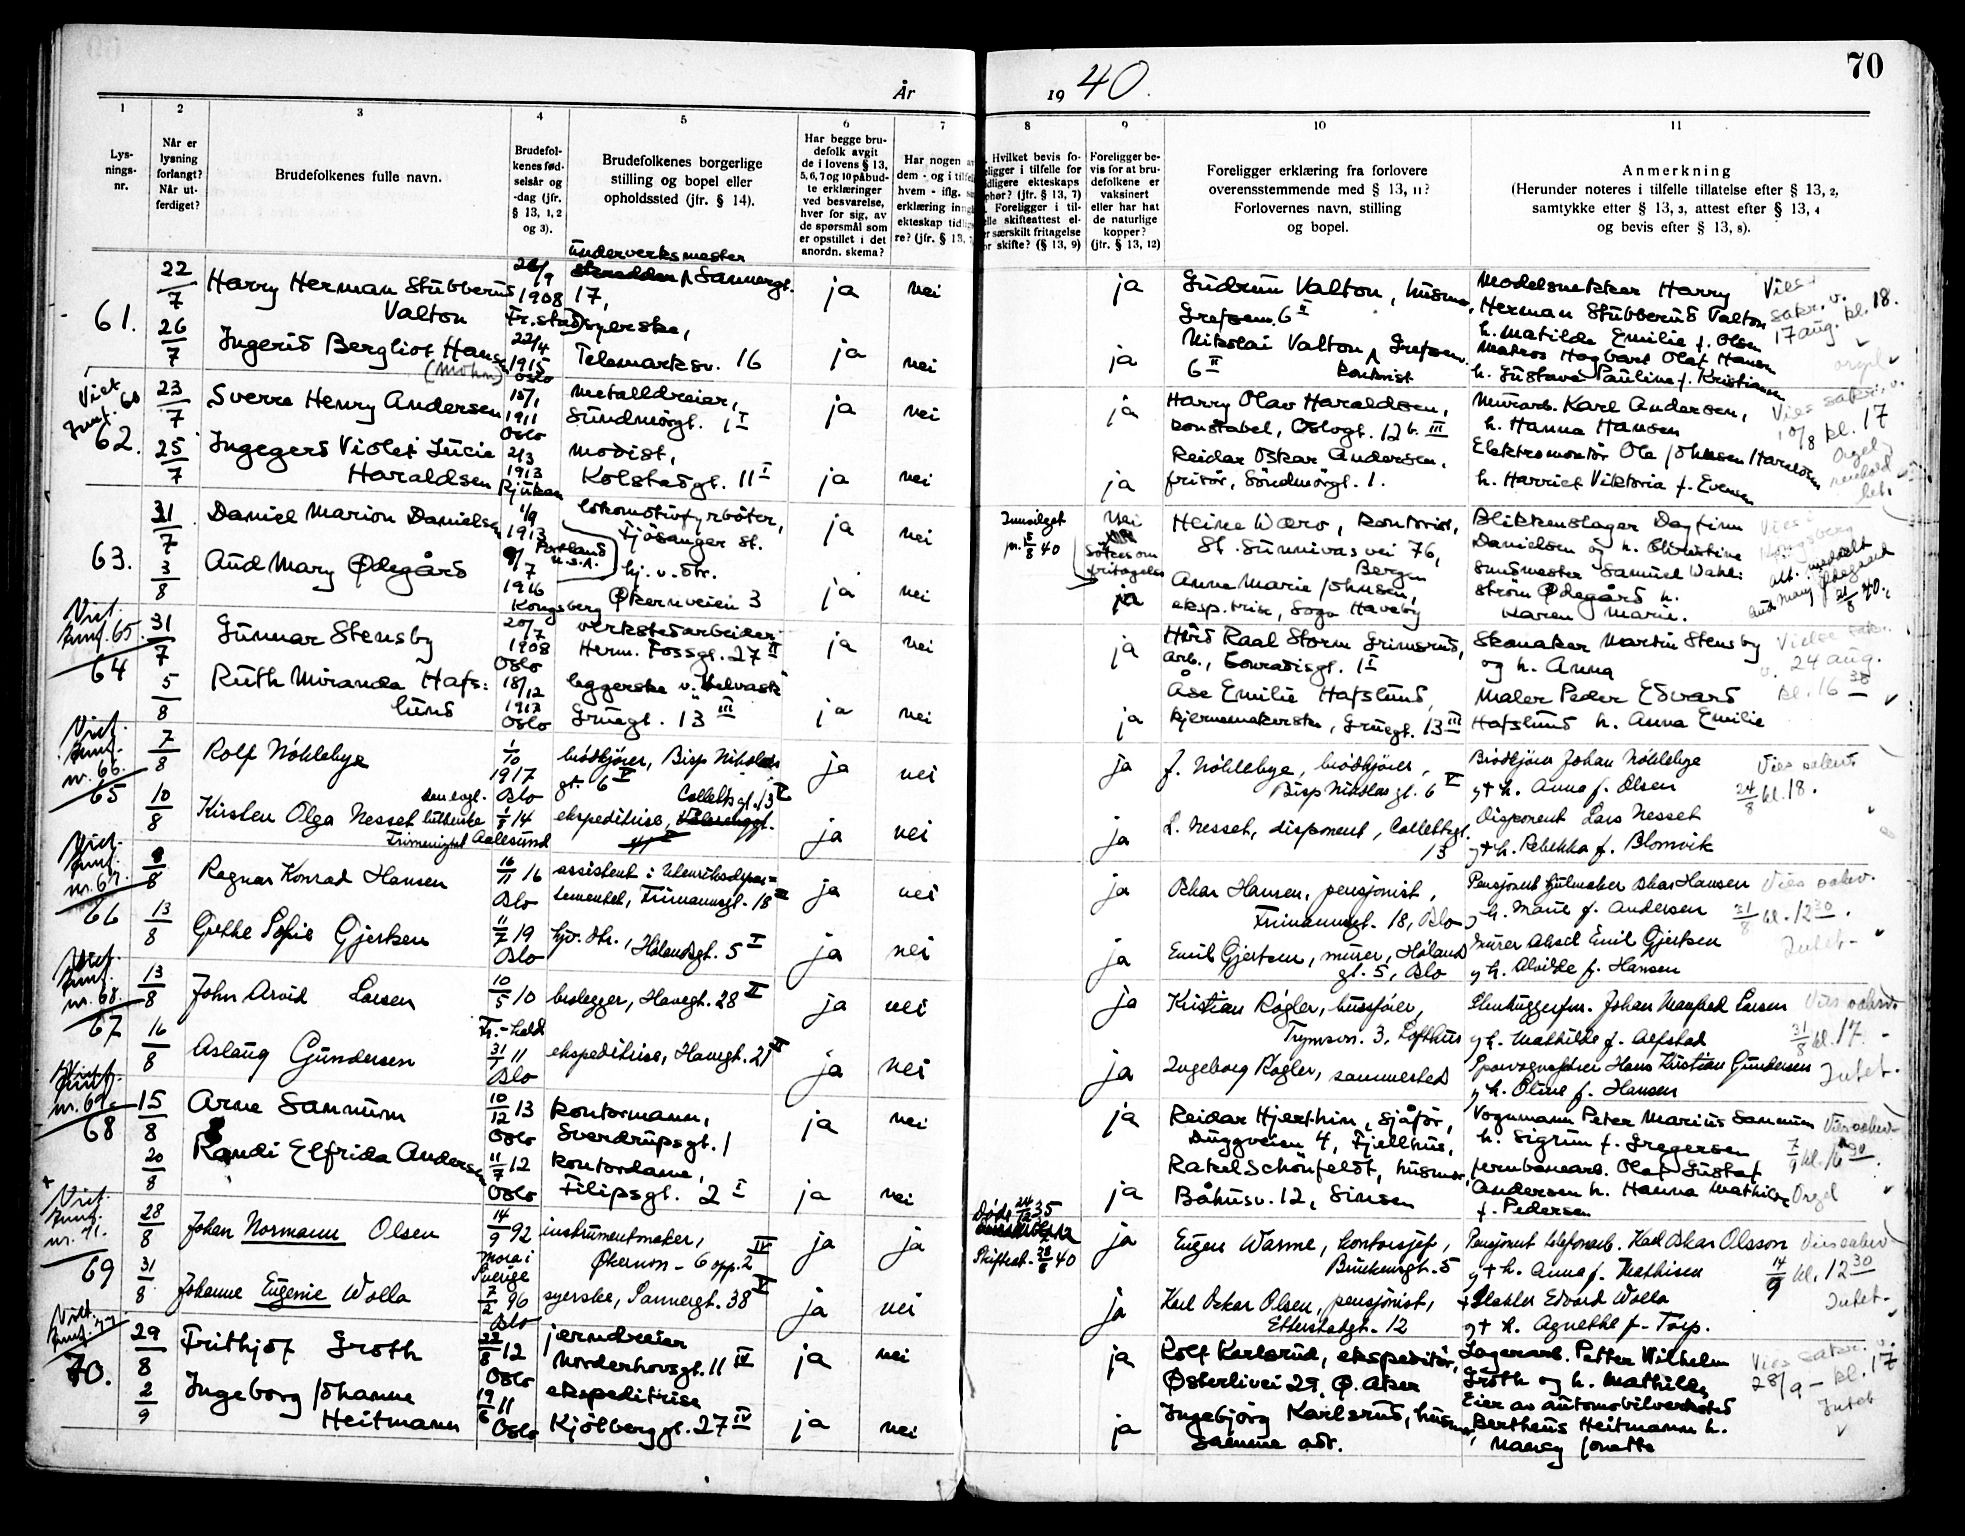 70
År 1940.
1 2 3 4 5 6 7 8 9 10 11
Lysningsnr.
Når er lysning forlangt? Når utferdiget?
Brudefolkenes fulle navn.
Brudefolkenes fødselsår og -dag (jfr. § 13, 1, 2 og 3).
Brudefolkenes borgerlige stilling og bopel eller opholdssted (jfr. § 14).
Har begge brudefolk avgit de i lovens § 13, 5, 6, 7 og 10 påbudte erklæringer ved besvarelse, hver for sig, av de spørsmål som er opstillet i det anordn. skema?
Foreligger bevis for at brudefolkene er vaksinert eller har hat de naturlige kopper? (jfr. § 13, 12)
Foreligger erklæring fra forlovere overensstemmende med § 13, 11? Forlovernes navn, stilling og bopel.
Anmerkning
(Herunder noteres i tilfelle tillatelse efter § 13, 2, samtykke efter § 13, 3, attest efter § 13, 4 og bevis efter § 13, 8).
61.
22/7
Harry Herman Stubberud Valton
1908
Fr.stad
underverksmester Sannergt. 17,
ja nei
ja
Gudrun Valton, husmor, Grefsenv. 6 II
Modelsnekker Harry Herman Stubberud Valton
h. Matilde Emilie f. Olsen
Vies sakr. v. 17 aug. kl. 18.
orgel
26/7
Ingerid Bergliot Hansen
(Mohn)
22/4 1915 Oslo
syerske, Telemarksv. 16
ja nei
ja
Nikolai Valton, kontorist Grefsenv. 6 II
Matros Hagbart Olaf Hansen
h. Gustava Pauline f. Kristiansen
Viet Jnnf. 60
62.
23/7
Sverre Henry Andersen
15/1 1911 Oslo
metalldreier, Sundmørgt. 1 I
ja nei
ja
Harry Olav Haraldsen, konstabel, Oslogt. 12 b. III
Murarb. Karl Andersen,
h. Hanna Hansen
Vies sakr. v. 10/8 kl. 17
Orgel
25/7
Ingegerd Violet Lucie Haraldsen
2/3 1913 Rjukan
modist, Kolstadgt. 11 I
ja nei
ja
Reidar Oskar Andersen, frisør, Söndmørgt. 1.
Elektromontör Ole Johnsen Haraldsen
h. Harriet Viktoria f. Evensen
63.
31/7
Daniel Marion Danielsen
1/9 1913
Portland U.S.A.
lokomotivfyrböter, Fjösanger st.
ja nei
Innvilget pr. 5/8 40
nei
Sökes om fritagelse
Heine Wærø, kontorist, St. Sunnivas vei 76, Bergen
Blikkenslager Dagfinn Danielsen og h. Christine
Vies i Kongsberg
3/8
Aud Mary Ødegård
9/7 1916 Kongsberg
hj. v. str. Økernveien 3
ja nei
ja
Anne Marie Johnsen, eksp.trise, Sogn Haveby
Smedmester Samuel Wahlström Ødegård h. Karen Marie.
Aud Mary Ødegaard 21/8 40.
Viet Jnnf. 65.
64
31/7
Gunnar Stensby
20/7 1908 Oslo
verkstedarbeider, Herm. Fossgt. 27 II
ja nei
ja
Hård Raal Storm Grimsrud, arb., Conradisgt. 1 I
Skomaker Martin Stensby og h. Anna
Vielse sakr. v. 24 aug. kl. 16 30
5/8
Ruth Miranda Hafslund
18/12 1917 Oslo
leggerske v. "Helvask" Gruegt. 13 III
ja nei
ja
Åse Emilie Hafslund, kjernemakerske, Gruegt. 13 III
Maler Peder Edvard Hafslund h. Anna Emilie
Viet Jnnf. nr. 66.
65
7/8
Rolf Nöklebye
1/10 1917 Oslo
brödkjörer, Bisp Nikolas gt. 6 V
ja nei
ja
J. Nöklebye, brödkjörer, Bisp Nikolas gt. 6 V
Brödkjörer Johan Nöklebye
g† h. Anna f. Olsen
Vies sakerv. 24/8 kl. 18.
10/8
Kirsten Olga Nesset
den evgl. lutherske Frimenighet
1/8 14 Aalesund
ekspeditrise, Collettsgt. 13 V
ja nei
ja
L. Nesset, disponent, Collettsgt. 13
Disponent Lars Nesset
g† h. Rebekka f. Blomvik
Viet Jnnf. nr. 67.
66
9/8
Ragnar Konrad Hansen
16/11 16 Oslo
assistent i Utenriksdepartementet, Frimannsgt. 18
ja nei
ja
Oskar Hansen, pensjonist, Frimannsgt. 18, Oslo
Pensjonert hjulmaker Oskar Hansen
g h. Marie f. Andersen
Vies sakerv. 31/8 kl. 12 30.
Intet -
13/8
Grethe Sofie Gjertsen
11/7 19 Oslo
hjv. str., Hølandsgt. 5 I
ja nei
ja
Emil Gjertsen, murer, Høland gt. 5, Oslo
Murer Aksel Emil Gjertsen
g h. Alvilde f. Hansen
Viet Jnnf. nr. 68.
67
13/8
John Arvid Larsen
10/5 10
Fr.-hald
brolegger, Havegt. 28 II
ja nei
ja
Kristian Røgler, bussfører, Trymsvn. 3, Lofthus
Stenhuggerfm. Johan Manfred Larsen
g h. Mathilde f. Alfstad
Vies sakerv. 31/8 kl. 17. -
16/8
Aslaug Gundersen
31/7 11 Oslo
ekspeditrise, Havegt. 21
ja nei
ja
Ingeborg Røgler, sammested
Sporvognsfører Hans Kristian Gundersen
g h. Oline f. Hansen
Intet -
nr. 69.
68
15/8
Arne Sannum
10/12 13 Oslo
kontormann, Sverdrupsgt. 1
ja nei
ja
Reidar Hjerthin, sjåfør, Duggveien 4, Fjellhus,
Vognmann Peter Marius Sannum
h. Sigrun f. Gregersen
Vies sakerv. 7/9 kl. 16 30.
20/8
Randi Elfrida Andersen
11/7 12 Oslo
kontordame, Filipsgt. 2 I
ja nei
ja
Rakel Schönfeldt, husmor, Båhusv. 12, Sinsen
Jernbanearb. Olaf Gustaf Andersen h. Hanna Mathilde f. Pedersen
Orgel
Viet Jnnf. nr. 71.
69
28/8
Johan Normann Olsen
14/9 92
Mora i Sverige
instrumentmaker, Økernvn - 6 opp. 2 IV
ja ja
Døde 24/12 35
Skifteat. 28/8 40
ja
Eugen Warme, kontorsjef, Brinkensgt. 5
Pensjonert telefonarb. Karl Oskar Olsson
g† h. Anna f. Mathisen
Vies sakerv. 14/9 kl. 12 30
Intet -
31/8
Johanne Eugenie Wolla
7/2 96 Oslo
syerske, Sannergt. 38 V
ja nei
ja
Karl Oskar Olsen, pensjonist, Etterstadgt. 12
Edvard Wolla
g† h. Agnethe f. Torp.
70.
29/8
Frithjof Groth
22/8 12 Oslo
jerndreier Norderhovsgt. 11 IV
ja nei
ja
Rolf Karlsrud, ekspeditör, Østerlivei 29, Ø. Aker
Lagerarb. Petter Wilhelm Groth og h. Mathilde
Vies sakr. v. 28/9 - kl. 17
Intet
2/9
Ingeborg Johanne Heitmann
19/6 11 Oslo
ekspeditrise Kjölberggt. 27 IV
ja nei
ja
Ingebjörg Karlsrud, husmor, samme adr.
Eier av automobilverksted Bertheus Heitmann h. Nancy Jonette